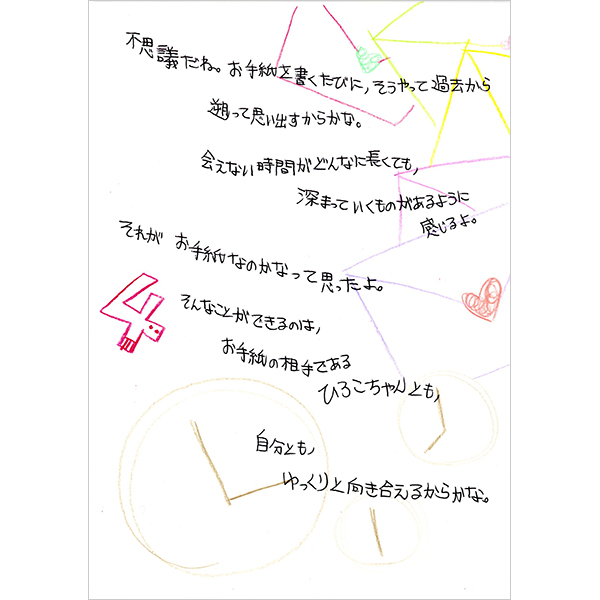 不思議だね。お手紙を書くたびに，そうやって過去から
遡って思い出すからかな。
会えない時間がどんなに長くても，
深まっていくものがあるように
感じるよ。
それが お手紙なのかなって思ったよ。
4
そんなことができるのは，
お手紙の相手である
ひろこちゃんとも，
自分とも，
ゆっくりと向き合えるからかな。